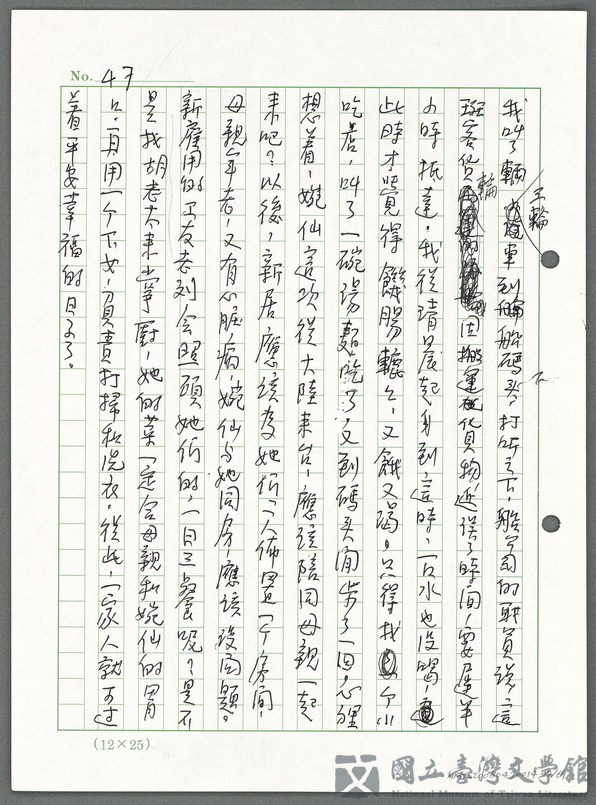 No. 47
我叫了輛三輪車到船碼頭,打听之下,船公司的职員說,這
班客貨輪因搬運貨物,延误了時間,要遲半
小時抵達。我從清晨起身到這時,一口水也没喝,
此時才覺得饑腸轆々,又餓又渴。只得找個小
吃店,叫了一碗湯麵吃了,又到碼头闲步了一回,心裡
想着,婉仙這次從大陸来台,應該陪同母親一起
来吧?以後,新居應該为她们二人佈置一个房间,
母親年老,又有心臟病,婉仙与她同房,應該没问題。
新雇用的工友老刘会照顾她们的,一日三餐呢?是不
是找胡老大来掌廚,她的菜一定合母親和婉仙的胃
口。再用一个下女,負責打掃和洗衣。從此,一家人就可过
着平安幸福的日子了。
(12×25)
國立臺灣文學館
National Museum of Taiwan Literature